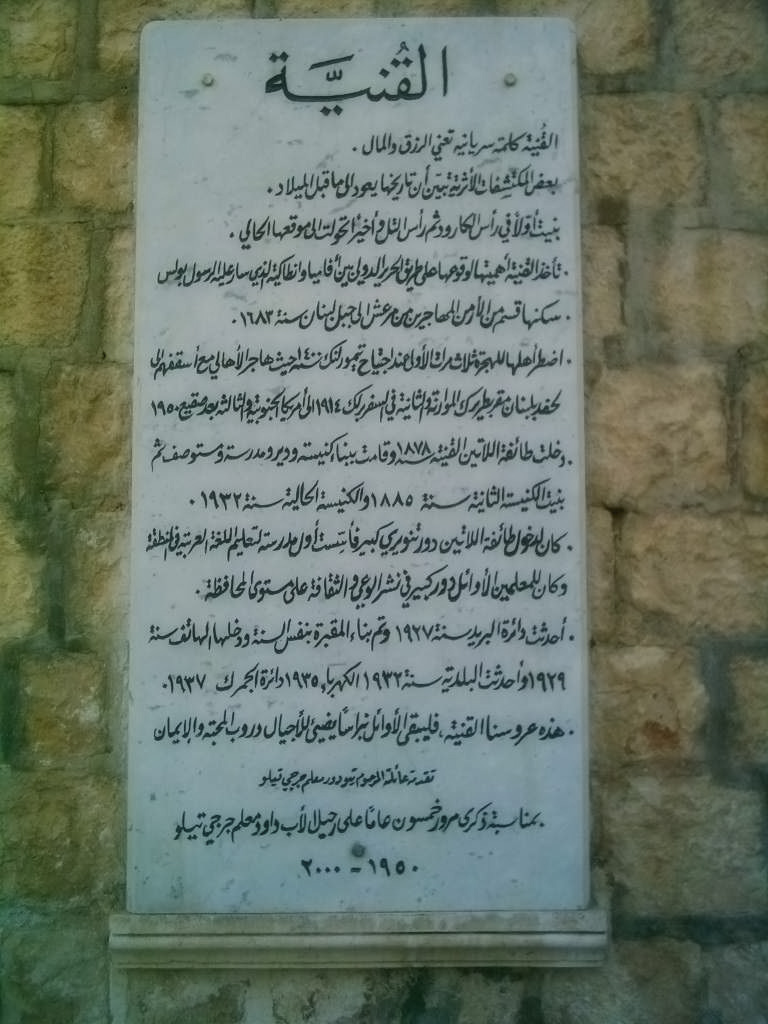 القُنيَّة
القُنيَة كلمة سريانية تعني الرزق والمال .
بعض المكتشفات الأثرية تبيّن أن تاريخها يعود الى ما قبل الميلاد .
بنيت أولاً في رأس الكارود ثم رأس التل وأخيراً تحولت الى موقعها الحالي .
. تأخذ القنية أهميتها لوقوعها على طريق الحرير الدولي بين أفاميا وانطاكية الذي سار عليه الرسول بولس
. سكنها قسم من الأرمن المهاجرين من مرعش الى جبل لبنان سنة ١٦٨٣ .
. اضطر أهلها للهجرة ثلاث مرات الأولى عند اجتياح تيمورلنك سنة ١٤٠٠ حيث هاجر الأهالي مع أسقفهم الى
لحفد بلبنان مقر بطريرك الموارنة والثانية في السفر برلك ١٩١٤ الى أمريكا الجنوبية والثالثة بعد صقيع ١٩٥٠
. دخلت طائفة اللاتين القنية سنة ١٨٧٨ وقامت ببناء كنيسة ودير ومدرسة ومستوصف ثم
بنيت الكنيسة الثانية سنة ١٨٨٥ والكنيسة الحالية سنة ١٩٣٢ .
. كان لدخول طائفة اللاتين دور تنويري كبير فأسّست أول مدرسة لتعليم اللغة العربية في المنطقة
وكان للمعلمين الأوائل دور كبير في نشر الوعي والثقافة على مستوى المحافظة .
. أحدثت دائرة البريد سنة ١٩٢٧ وتم بناء المقبرة بنفس السنة ودخلها الهاتف سنة
١٩٢٩ وأحدثت البلدية سنة ١٩٣٢ الكهرباء ١٩٣٥ دائرة الجمرك ١٩٣٧ .
. هذه عروسنا القنية ، فليبقى الأوائل نبراساً يضيئ للأجيال دروب المحبة والإيمان
تقدمة عائلة المرحوم تيودور معلم جرجي تيلو
. بمناسبة ذكرى مرور خمسون عاماً على رحيل الأب داود معلم جرجي تيلو
١٩٥٠ - ٢٠٠٠